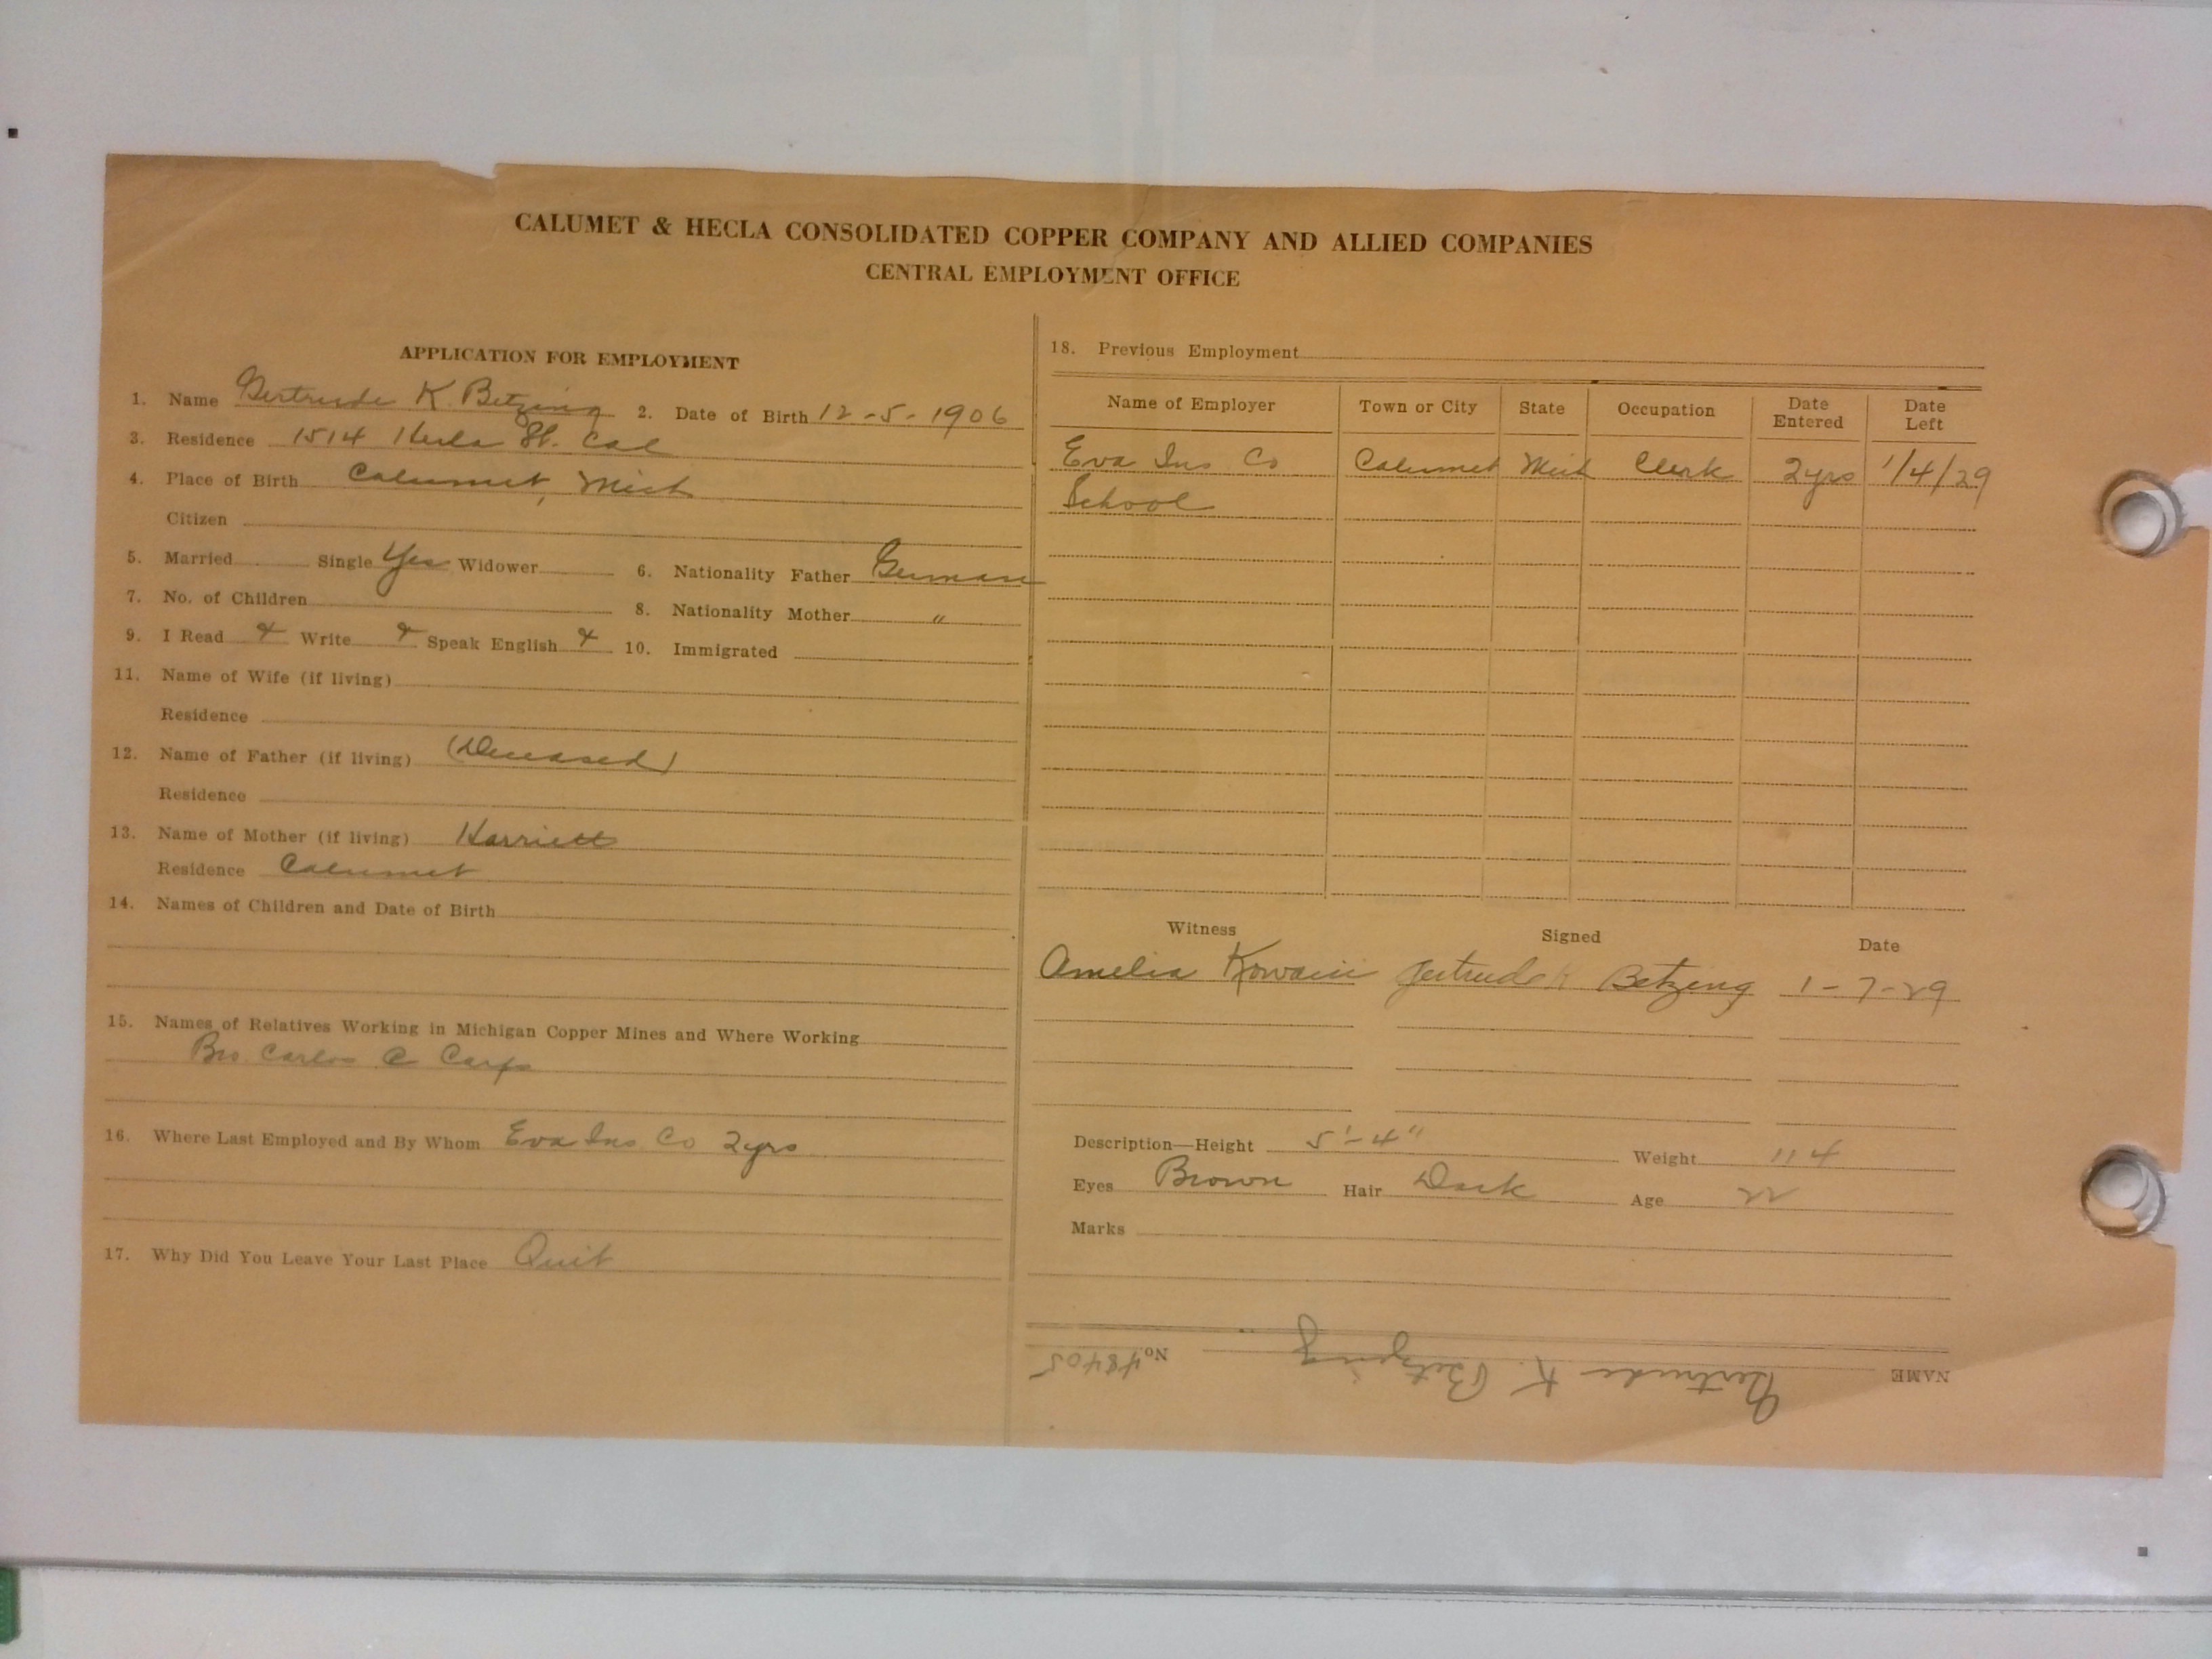 CALUMET & HECLA CONSOLIDATED COPPER COMPANY AND ALLIED COMPANIES
CENTRAL EMPLOYMENT OFFICE
APPLICATION FOR EMPLOYMENT
1. Name Gertrude K Betzing 2. Date of Birth 12-5-1906
3. Residence 1514 Hecla St. Cal
4. Place of Birth Calumet, Mich
Citizen
5. Married Single Yes Widower 6. Nationality Father German
7. No. of Children 8. Nationality Mother "
9. I Read Write Speak English 10. Immigrated
11. Name of Wife (if living)
Residence
12. Name of Father (if living) (Deceased)
Residence
13. Name of Mother (if living) Harriett
Residence Calumet
14. Names of Children and Date of Birth
15. Names of Relatives Working in Michigan Copper Mines and Where Working
Bro. Carlos C
16. Where Last Employed and By Whom Eva Ins. Co 2yrs
17. Why Did You Leave Your Last Place Quit
18. Previous Employment
Name of Employer Town or City State Occupation Date Entered Date Left
Eva Ins Co Calumet Mich Clerk 2yrs 1/4/29
School
Witness Signed Date
Amelia Gertrude K Betzing 1-7-29
Description—Height 5'-4" Weight 114
Eyes Brown Hair Dark Age 22
Marks
NAME Gertrude K. Betzing No. 48405